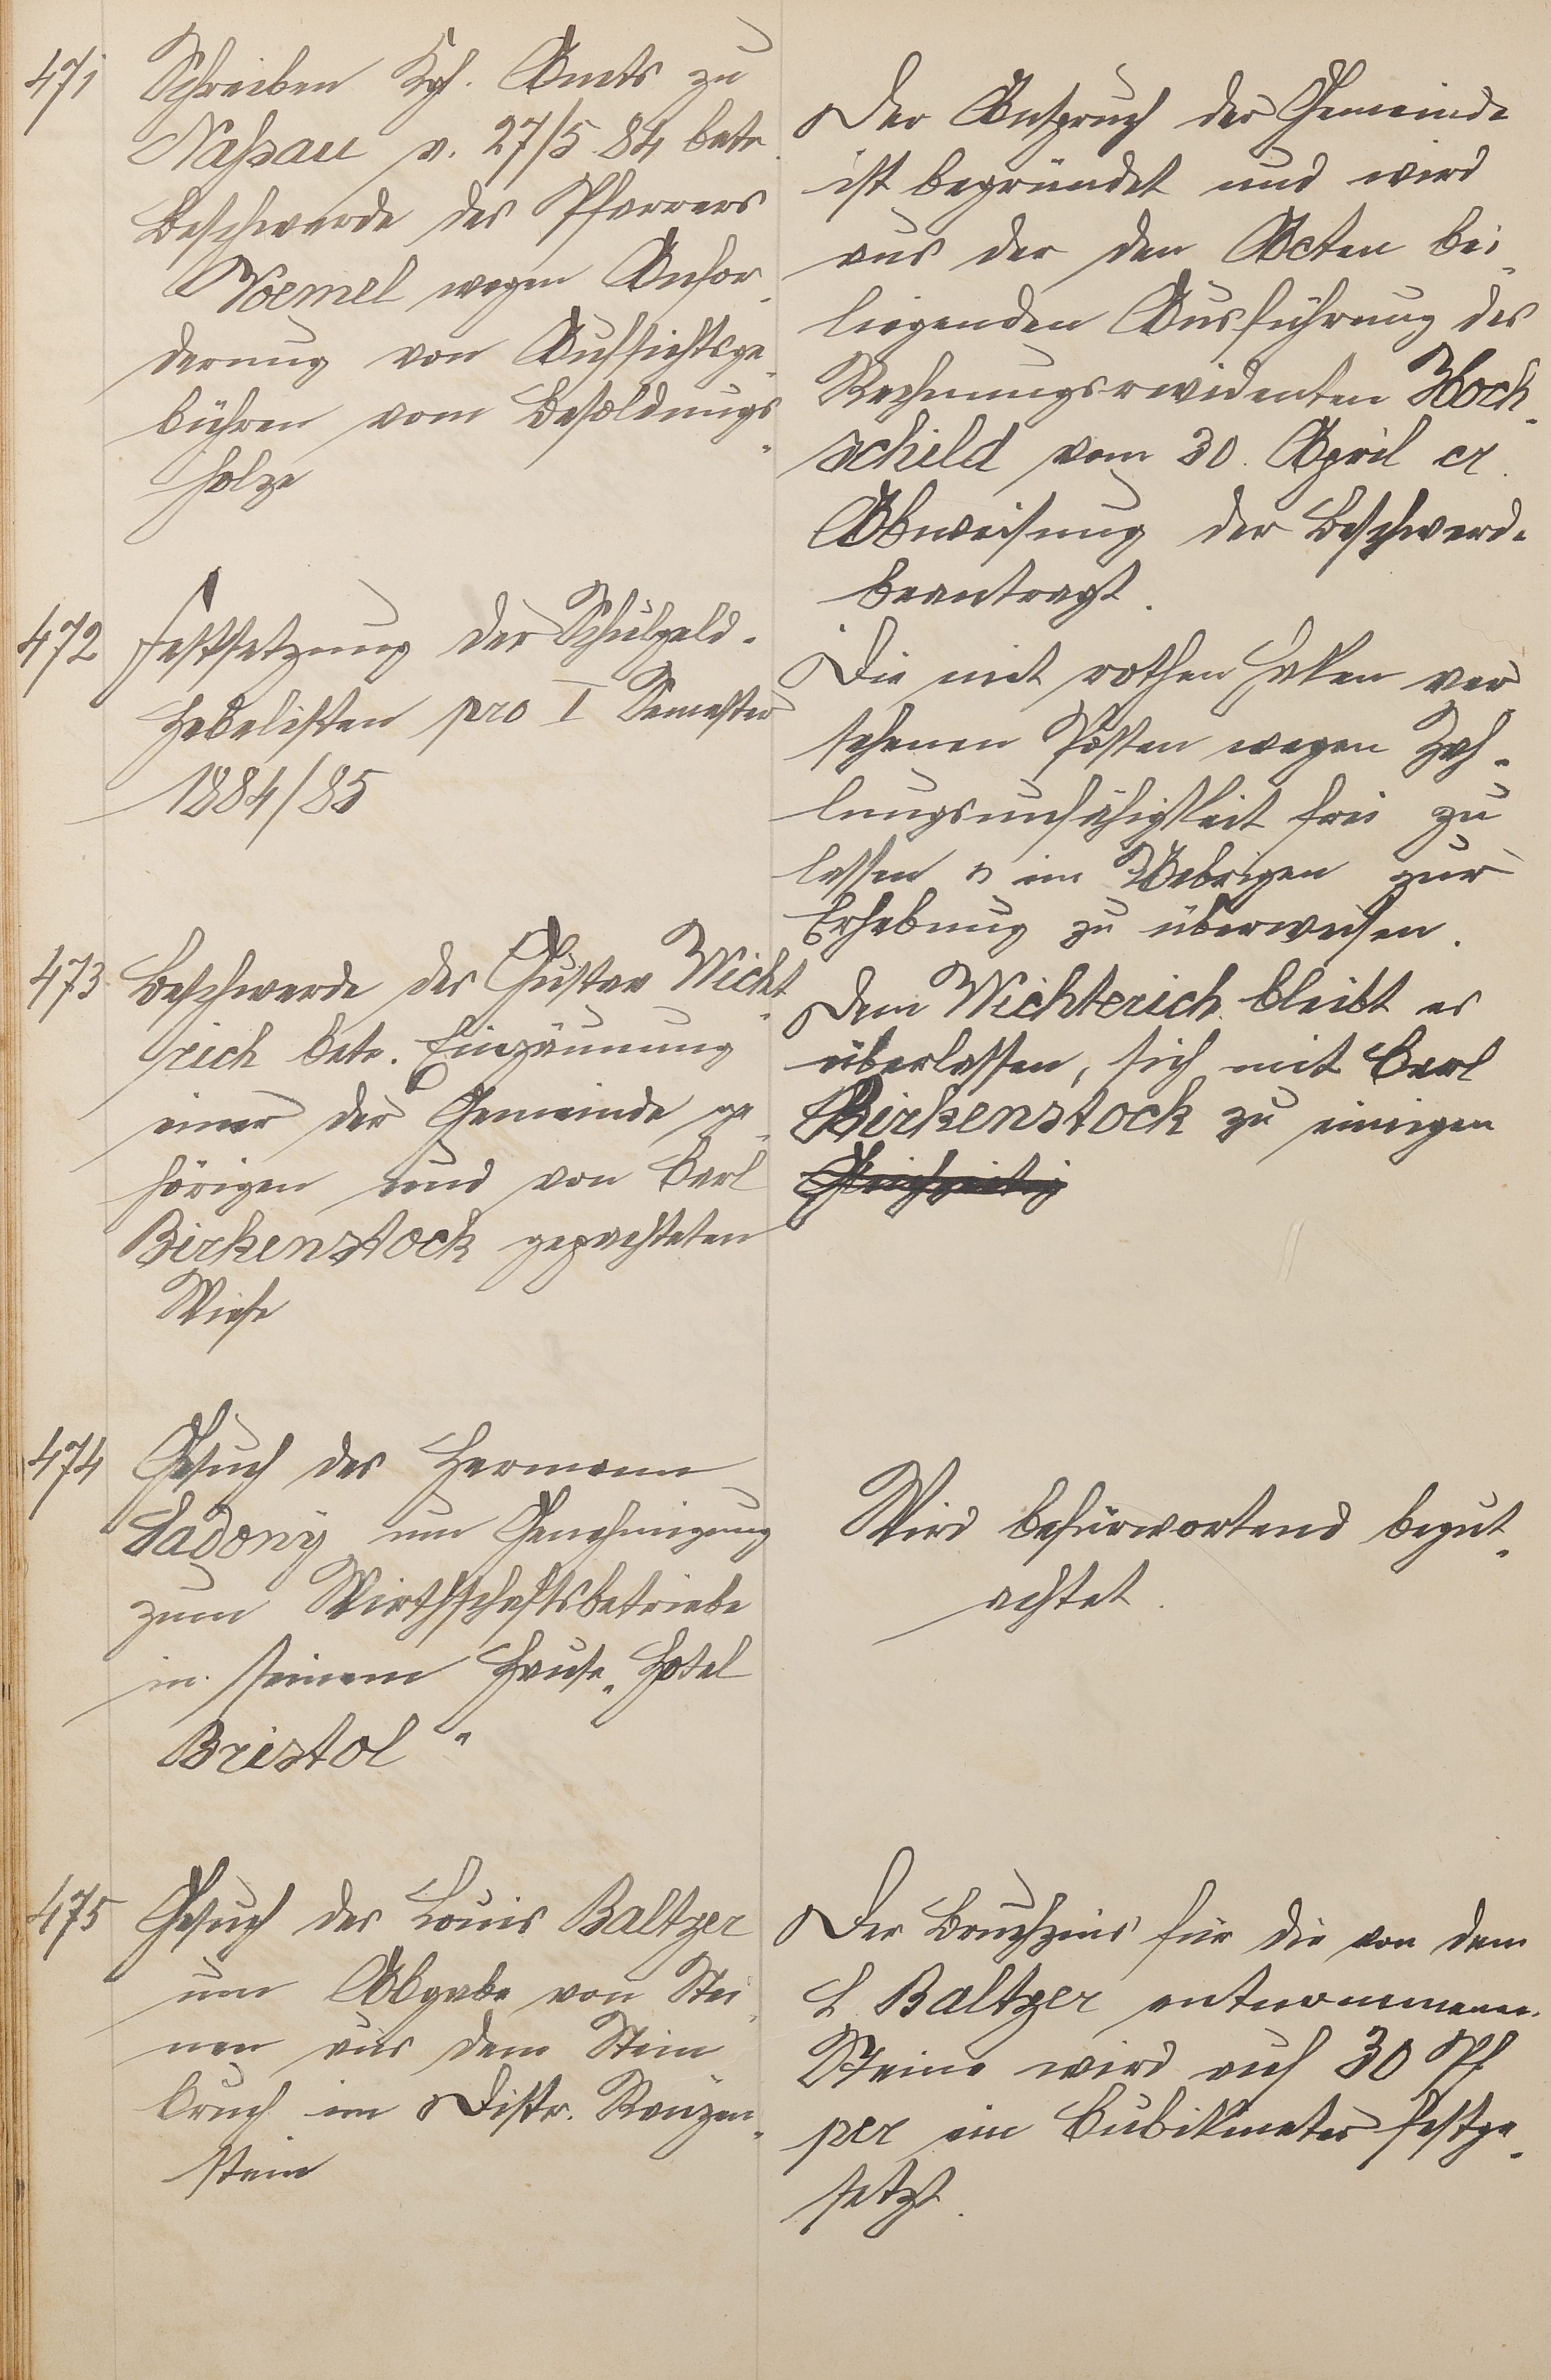 471
Schreiben Kgl. Amts zu
Nassau v. 27/5 84 betr.
Beschwerde des Pfarrers
Voemel wegen Anfor-
derung von Aufsichtsge-
bühren vom Besoldungs-
holze
Der Anspruch der Gemeinde
ist begründet und wird
aus der den Acten bei-
liegenden Ausführung des
Rechnungsrevidenten Hoch-
schild vom 30. April cr.
Abweisung der Beschwerde
beantragt.
472
Festsetzung der Schulgeld-
Hebelisten pro I Semester
1884/85
Die mit rothen Haken ver
sehenen Posten wegen Zah-
lungsunfähigkeit frei zu
lassen u im Uebrigen zur
Erhebung zu überweisen.
473
Beschwerde des Gustav Wicht-
rich betr. Einzäunung
einer der Gemeinde ge-
hörigen und von Carl
Birkenstock gepachteten
Wiese
Dem Wichterich bleibt es
überlassen, sich mit Carl
Birkenstock zu einigen
Gleichzeitig
474
Gesuch des Hermann
Sadony um Genehmigung
zum Wirthschaftsbetriebe
in seinem Hause „Hotel
Bristol"
Wird befürwortend begut-
achtet.
475
Gesuch des Louis Baltzer
um Abgabe von Stei-
nen aus dem Stein
bruch im Distr.
stein
Der Bruchzins für die von dem
L Baltzer entnommenen
Steine wird auf 30 Pf
per ein Cubikmeter festge-
setzt.